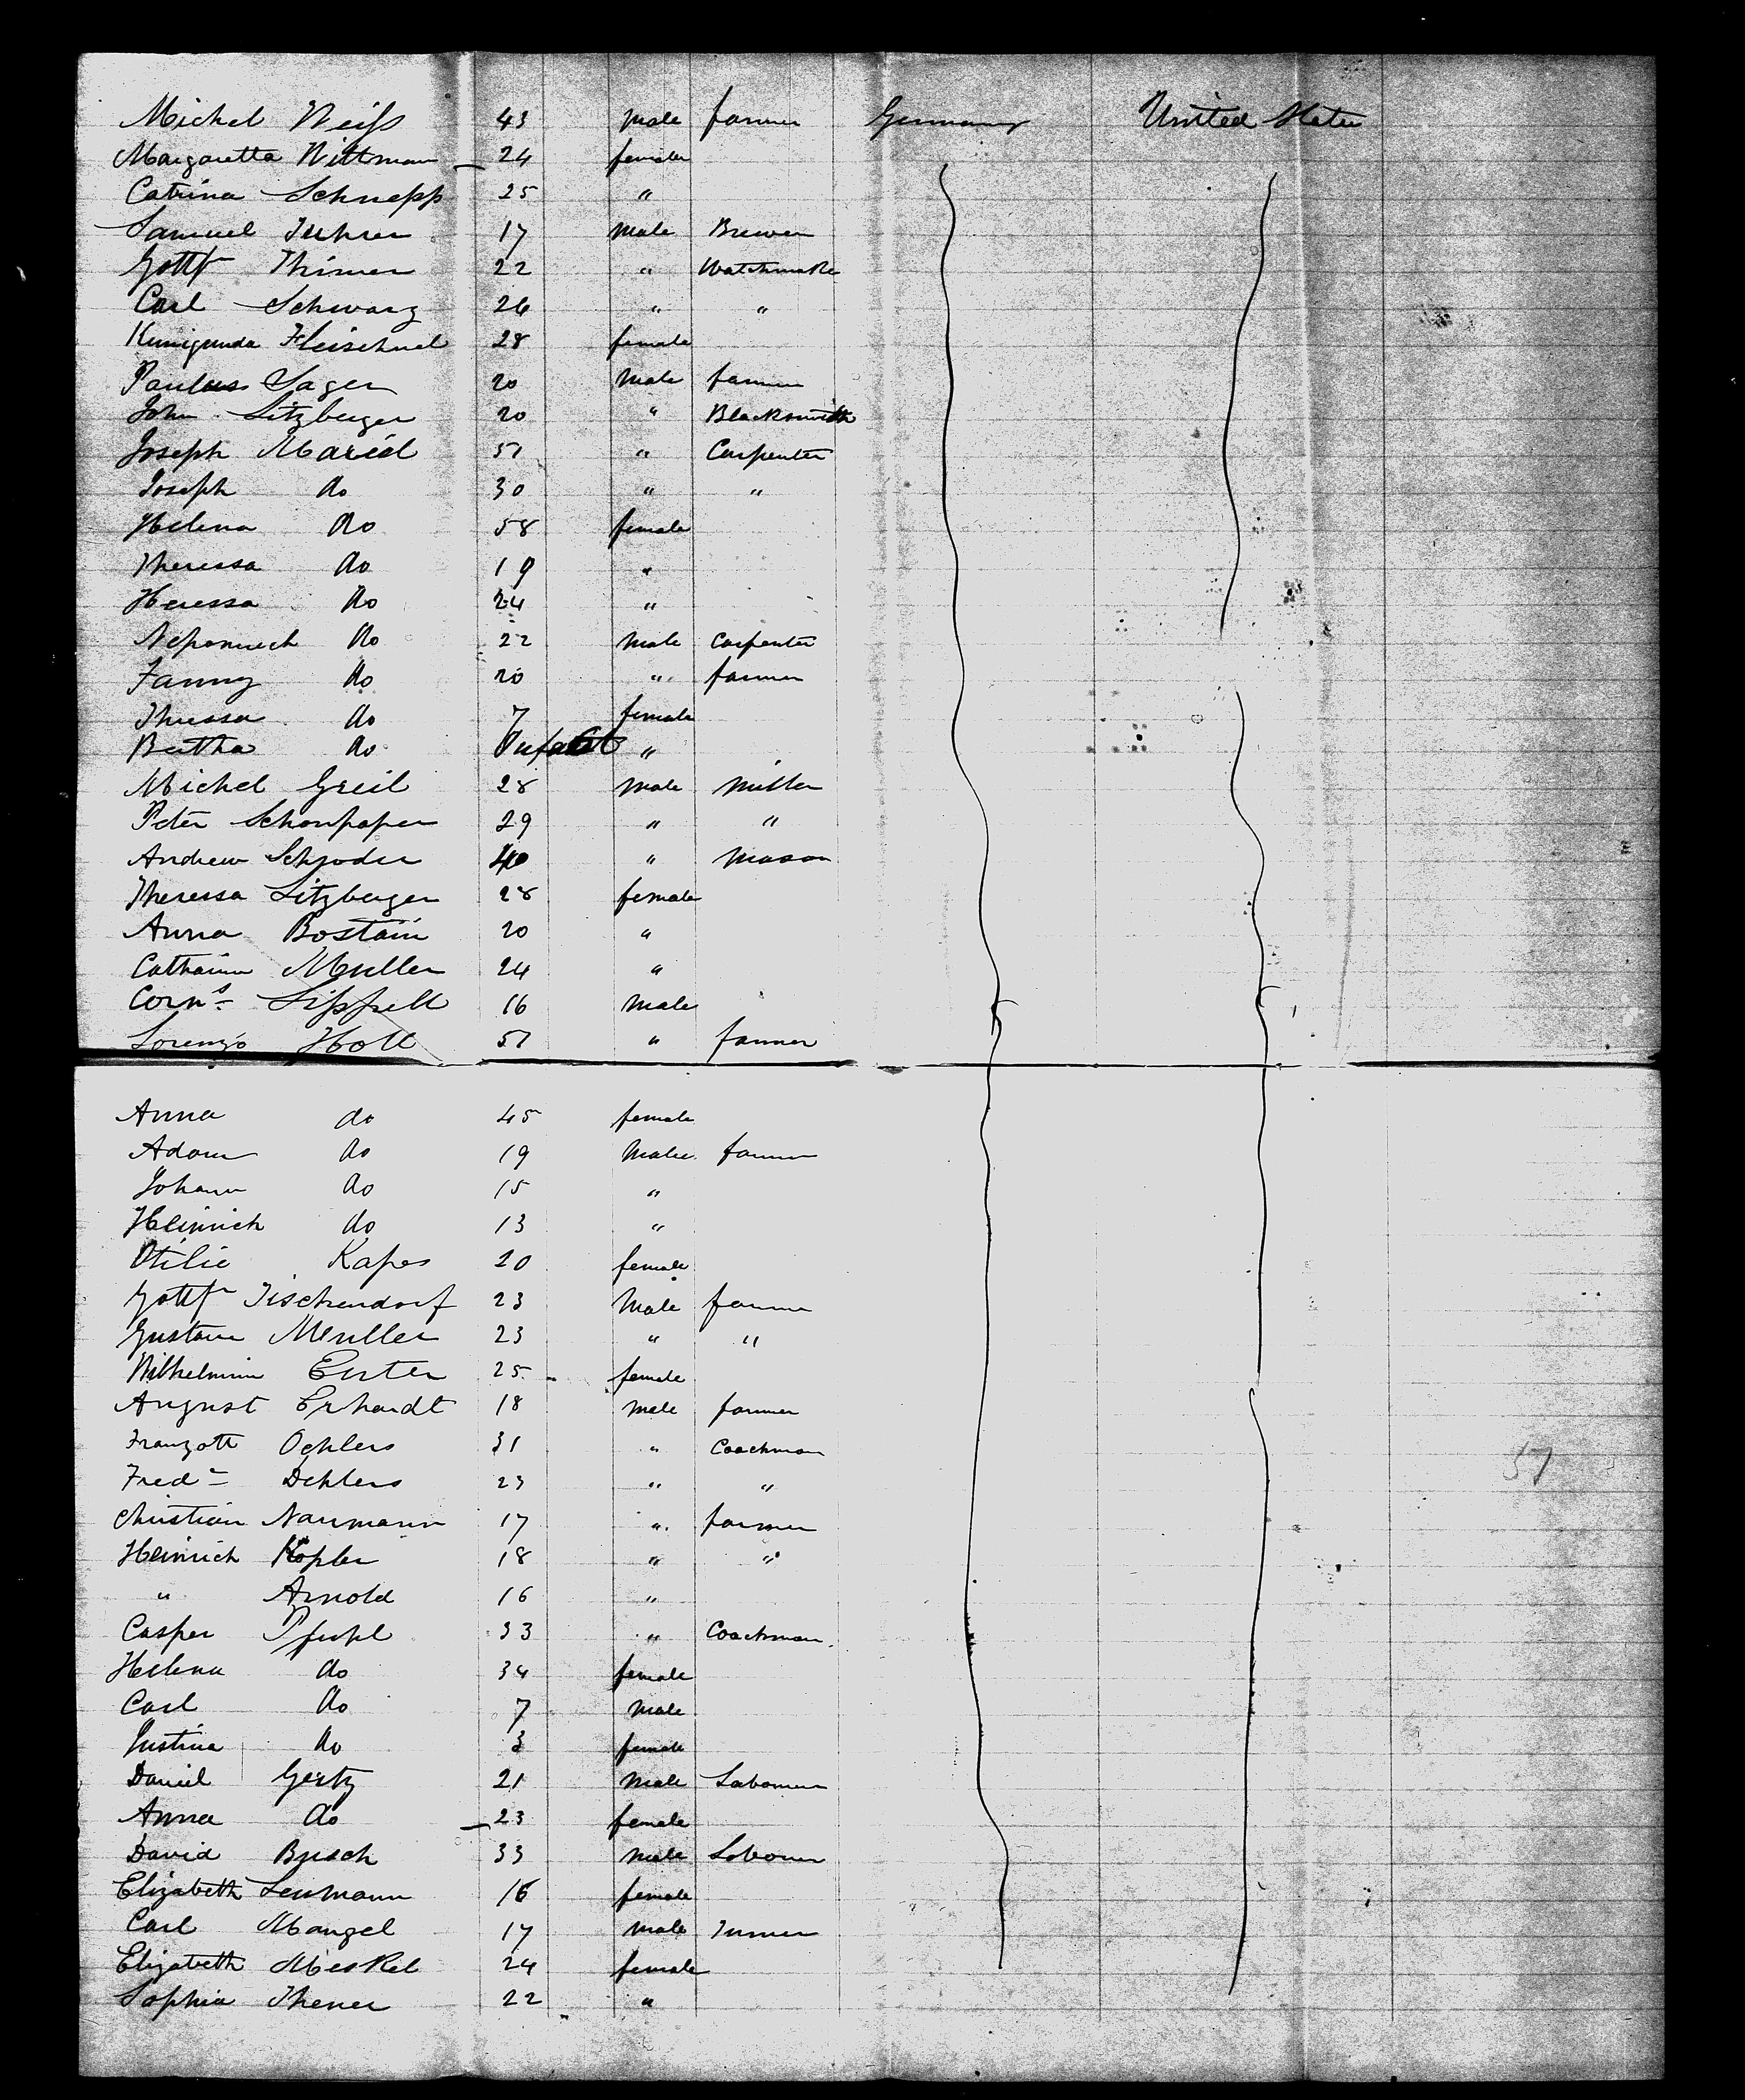 Michel Weiss 43 male farmer Germany United States
Margaretta Wittmann 24 female
Catrina Schnepp 25 "
Samuel 17 male Brewer
Gottf 22 " Watchmaker
Carl Schwarz 26 " "
Kunigunda 28 female
Paulus Sager 20 male farmer
John Litzberger 20 " Blacksmith
Joseph Mariel 57 " Carpenter
Joseph do 30 " "
Helena do 58 female
Theressa do 19 "
Heressa do 24 "
do 22 male Carpenter
Fanny do 20 " farmer
Theressa do 7 female
Bertha do Infant "
Michel Greil 28 male Miller
Peter 29 " "
Andrew Schroder 40 " Mason
Theressa Litzberger 28 female
Anna Bostain 20 "
Catharina Muller 24 "
Corns Lippelt 16 male
Lorenzo Holl 57 " farmer
Anna do 45 female
Adam do 19 Male farmer
Johann do 15 "
Heinrich do 13 "
Otilie Kapes 20 female
Gottf Tischendorf 23 Male farmer
Gustav Meuller 23 " "
Wilhelmine 25 female
August Erhardt 18 male farmer
Oehlers 31 " Coachman
Fred Dehlers 23 " "
Christian Naumann 17 " farmer
Heinrich Kopler 18 " "
" Arnold 16 "
Casper Pfuhl 33 " Coachman
Helena do 34 female
Carl do 7 male
Justina do 3 female
Daniel Gertz 21 male Labourer
Anna do 23 female
David Busch 33 male Labourer
Elizabeth 16 female
Carl Mangel 17 male Turner
Elizabeth Meskel 24 female
Sophia Thener 22 "
57